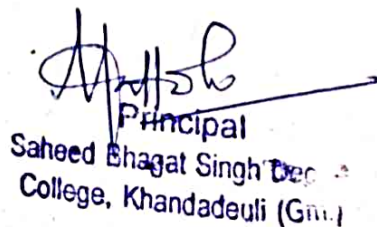 Principal
Saheed Bhagat Singh
College, Khandadeuli